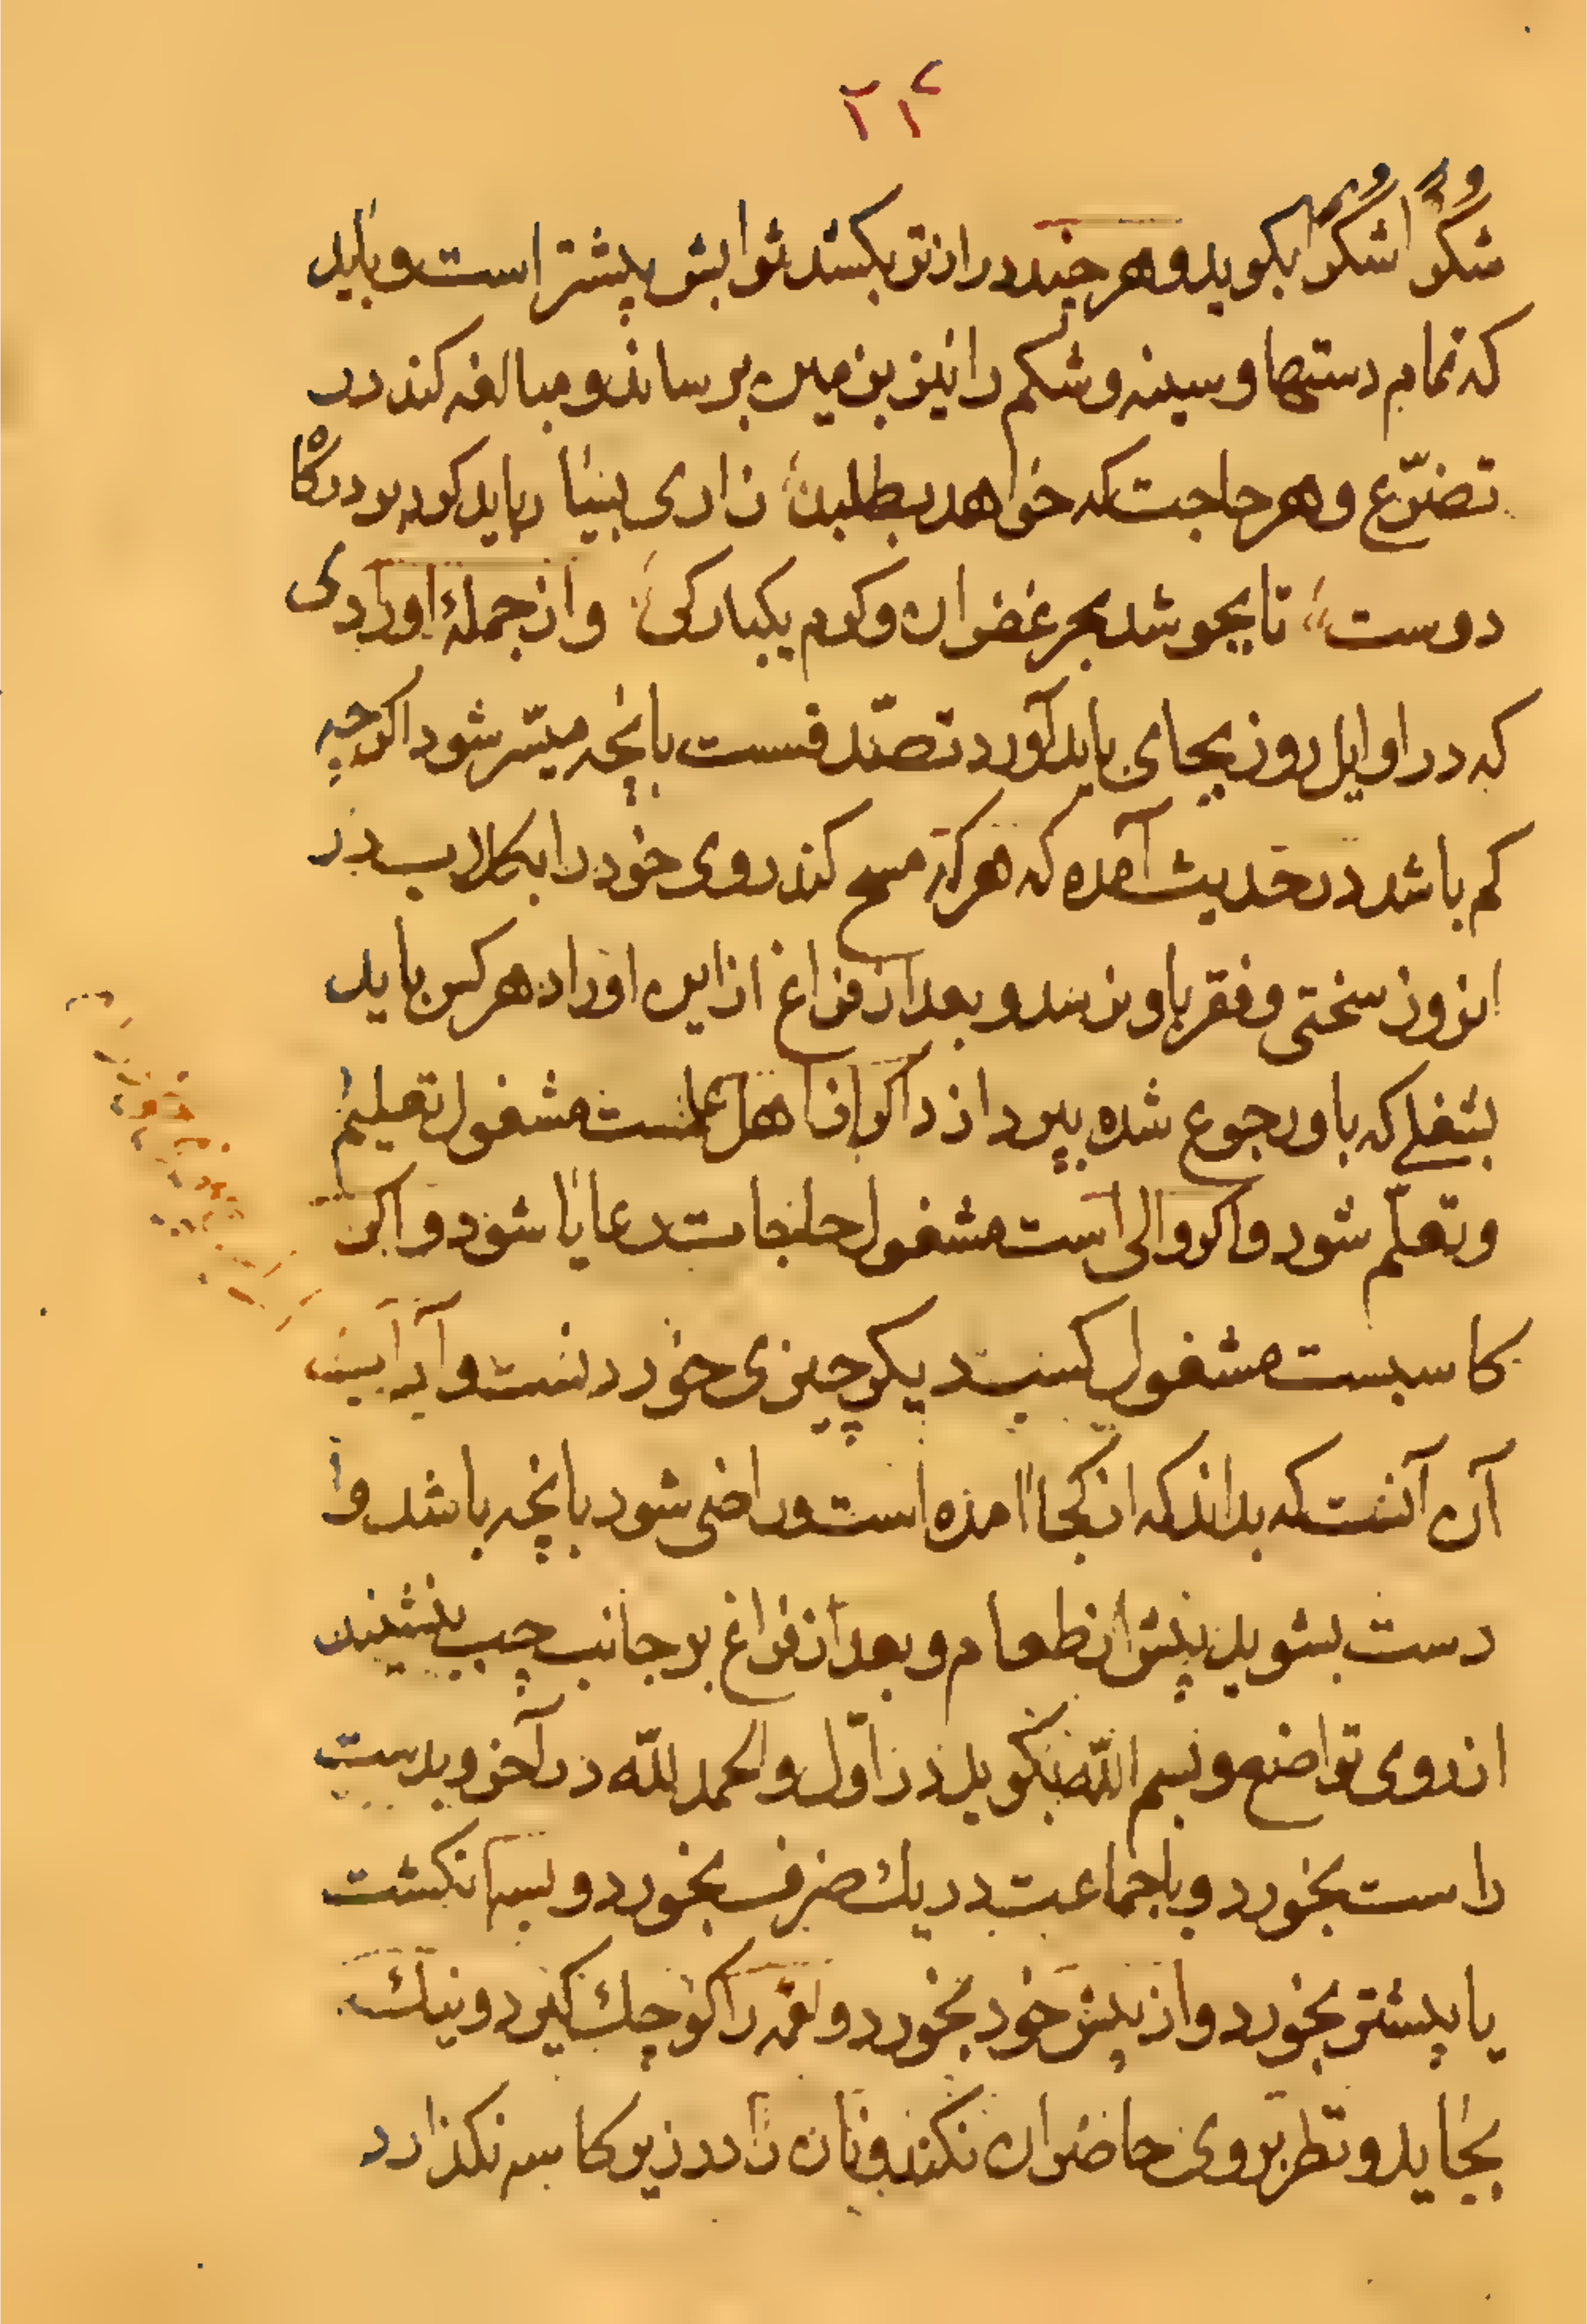 ۲۱۲
شکراً شکراً بکوید و هر چند دراز تر بکشد ثوابش پیشتر است و باید
که تمام دستها و سینه و شکم را نیز بزمین برساند و مبالغه کند در
تضرّع و هر حاجت که خواهد بطلبد زاری بسیار باید کرد بر درکاه
دوست تا بجوشد بحر غفران و کرم یکبارکی و از جملهٔ اورادی
که در اوایل روز بجای باید آورد تصدقست بانچه میسّر شود اکرچه
کم باشد در حدیث آمده که هر که مسح کند روی خود را بکلاب در
انروز سختی و فقر باو نرسد و بعد از فراغ از این اوراد هر کس باید
بشغلی که باو رجوع شده بپردازد اکر از اهل علمست مشغول تعلیم
و تعلّم شود و اکر والی است مشغول حاجات رعایا شود و اکر
کاسبست مشغول کسب دیکر چیزی خوردنست و آدابش
آن آنست که بداند که از کجا آمده است و راضی شود بانچه باشد و
دست بشوید پیش از طعام و بعد از فراغ بر جانب چپ بنشیند
از روی تواضع و بسم الله بکوید در اوّل و الحمد لله در آخر و بدست
راست بخورد و با جماعت در یك ضرف بخورد و بسه انکشت
یا پیشتر بخورد و از پیش خود بخورد و لقمه را کوچك کیرد و نیك
بخاید و نظر بروی حاضران نکند و نان را در زیر کاسه نکذارد